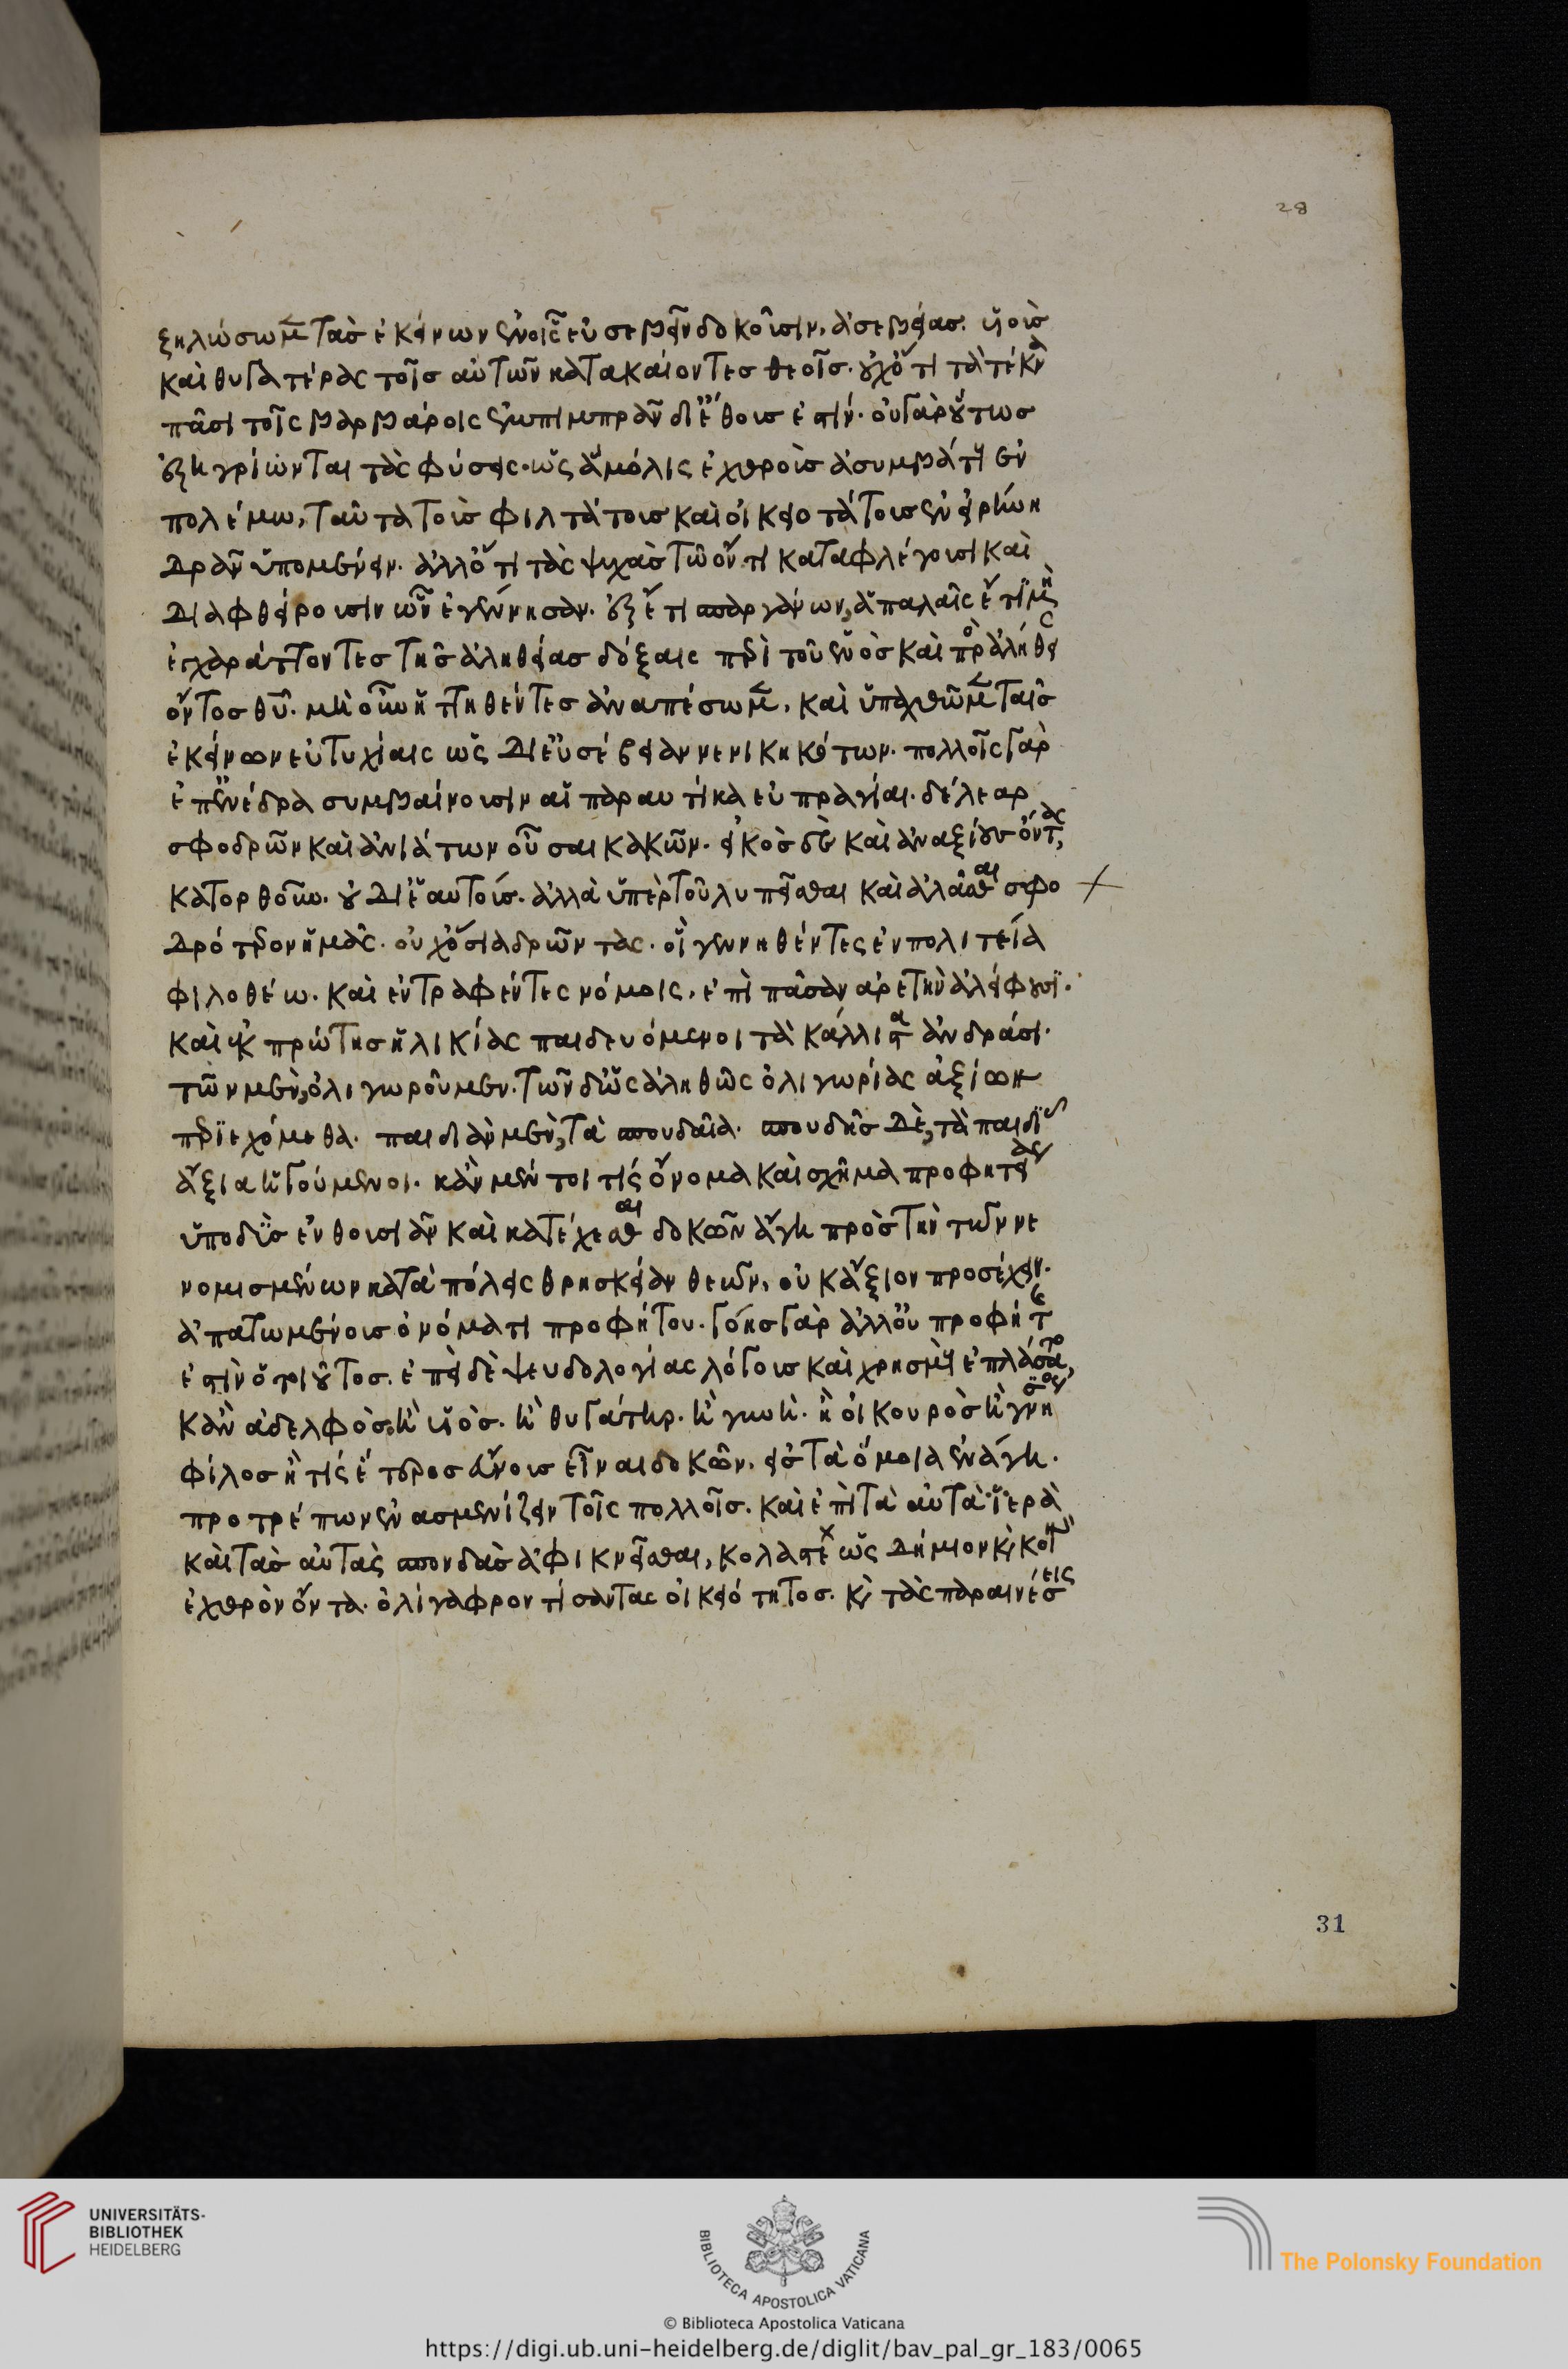 ζηλώσωμεν τὰς ἐκείνων ἐν οἷς εὐσεβεῖν δοκοῦσιν, ἀσεβείας. υἱοὺς
καὶ θυγατέρας τοῖς αὐτῶν κατακαίοντες θεοῖς. οὐχ ὅτι τὰ τέκνα
πᾶσι τοῖς βαρβάροις ἐμπιμπρᾶν δι' ἔθους ἐστίν. οὐ γὰρ οὕτως
ἐξηγρίωνται τὰς φύσεις. ὡς ἃ μόλις ἐχθροὺς ἀσυμβάτους ἐν
πολέμω, ταῦτα τοὺς φιλτάτους καὶ οἰκειοτάτους ἐν εἰρήνη
δρᾶν ὑπομένειν. ἀλλ' ὅτι τὰς ψυχὰς τῶ ὄντι καταφλέγουσι καὶ
διαφθείρουσιν ὧν ἐγέννησαν. ἐξ ἔτι σπαργάνων, ἁπαλαῖς ἔτι μὴ
ἐγχαράττοντες τῆς ἀληθείας δόξαις περὶ τοῦ ἑνὸς καὶ πρὸς ἀλήθει
ὄντος θυ. μὴ οὖν ἡττηθέντες ἀναπέσωμεν, καὶ ὑπαχθῶμεν ταῖς
ἐκείνων εὐτυχίαις ὡς δι' εὐσέβειαν νενικηκότων. πολλοῖς γὰρ
ἐπ' ἐνέδρα συμβαίνουσιν αἱ παραυτίκα εὐπραγίαι. δέλεαρ
σφοδρῶν καὶ ἀνιάτων οὖσαι κακῶν. εἰκὸς δὲ καὶ ἀναξίους ὄντας,
κατορθοῦν. οὐ δι' ἑαυτούς. ἀλλὰ ὑπὲρ τοῦ λυπεῖσθαι καὶ ἀλᾶσθαι σφο
δρότερον ἡμᾶς. οὐχ ὁσία δρῶντας. οἳ γεννηθέντες ἐν πολιτεία
φιλοθέω. καὶ ἐντραφέντες νόμοις, ἐπὶ πᾶσαν ἀρετὴν ἀλείφουσι.
καὶ ἐκ πρώτης ἡλικίας παιδευόμενοι τὰ κάλλιστα ἀνδράσι.
τῶν μὲν, ὀλιγωροῦμεν. τῶν δ' ὡς ἀληθῶς ὀλιγωρίας ἀξίων
περιεχόμεθα. παιδιὰν μὲν, τὰ σπουδαῖα. σπουδῆς δὲ, τὰ παιδιᾶς
ἄξια ἡγούμενοι. κἂν μέντοι τίς ὄνομα καὶ σχῆμα προφητείας
ὑποδὺς ἐνθουσιᾶν καὶ κατέχεσθαι δοκῶν ἄγη πρὸς τὴν τῶν νε
νομισμένων κατὰ πόλεις θρησκείαν θεῶν, οὐκ ἄξιον προσέχειν.
ἀπατωμένους ὀνόματι προφήτου. γόης γὰρ ἀλλ' οὐ προφήτης
ἐστὶν ὁ τοιοῦτος. ἐπεὶ δὲ ψευδολογίας λόγους καὶ χρησμοὺς ἐπλάσατο,
κἂν ἀδελφὸς, ἢ υἱὸς. ἢ θυγάτηρ. ἢ γυνὴ. ἢ οἰκουρὸς ἢ γνήσιος
φίλος ἤ τίς ἕτερος εὔνους εἶναι δοκῶν, εἰς τὰ ὅμοια ἐνάγη.
προτρέπων ἐν ασμενίζειν τοῖς πολλοῖς. καὶ ἐπὶ τὰ αὐτὰ ἱερὰ
καὶ τὰς αὐτὰς σπονδὰς ἀφικνεῖσθαι, κολαστέον ὡς δήμιον καὶ κοινὸν
ἐχθρὸν ὄντα. ὀλίγα φροντίσαντας οἰκειότητος. καὶ τὰς παραινέσεις
28
31
UNIVERSITÄTS-
BIBLIOTHEK
HEIDELBERG
BIBLIOTECA APOSTOLICA VATICANA
The Polonsky Foundation
© Biblioteca Apostolica Vaticana
https://digi.ub.uni-heidelberg.de/diglit/bav_pal_gr_183/0065